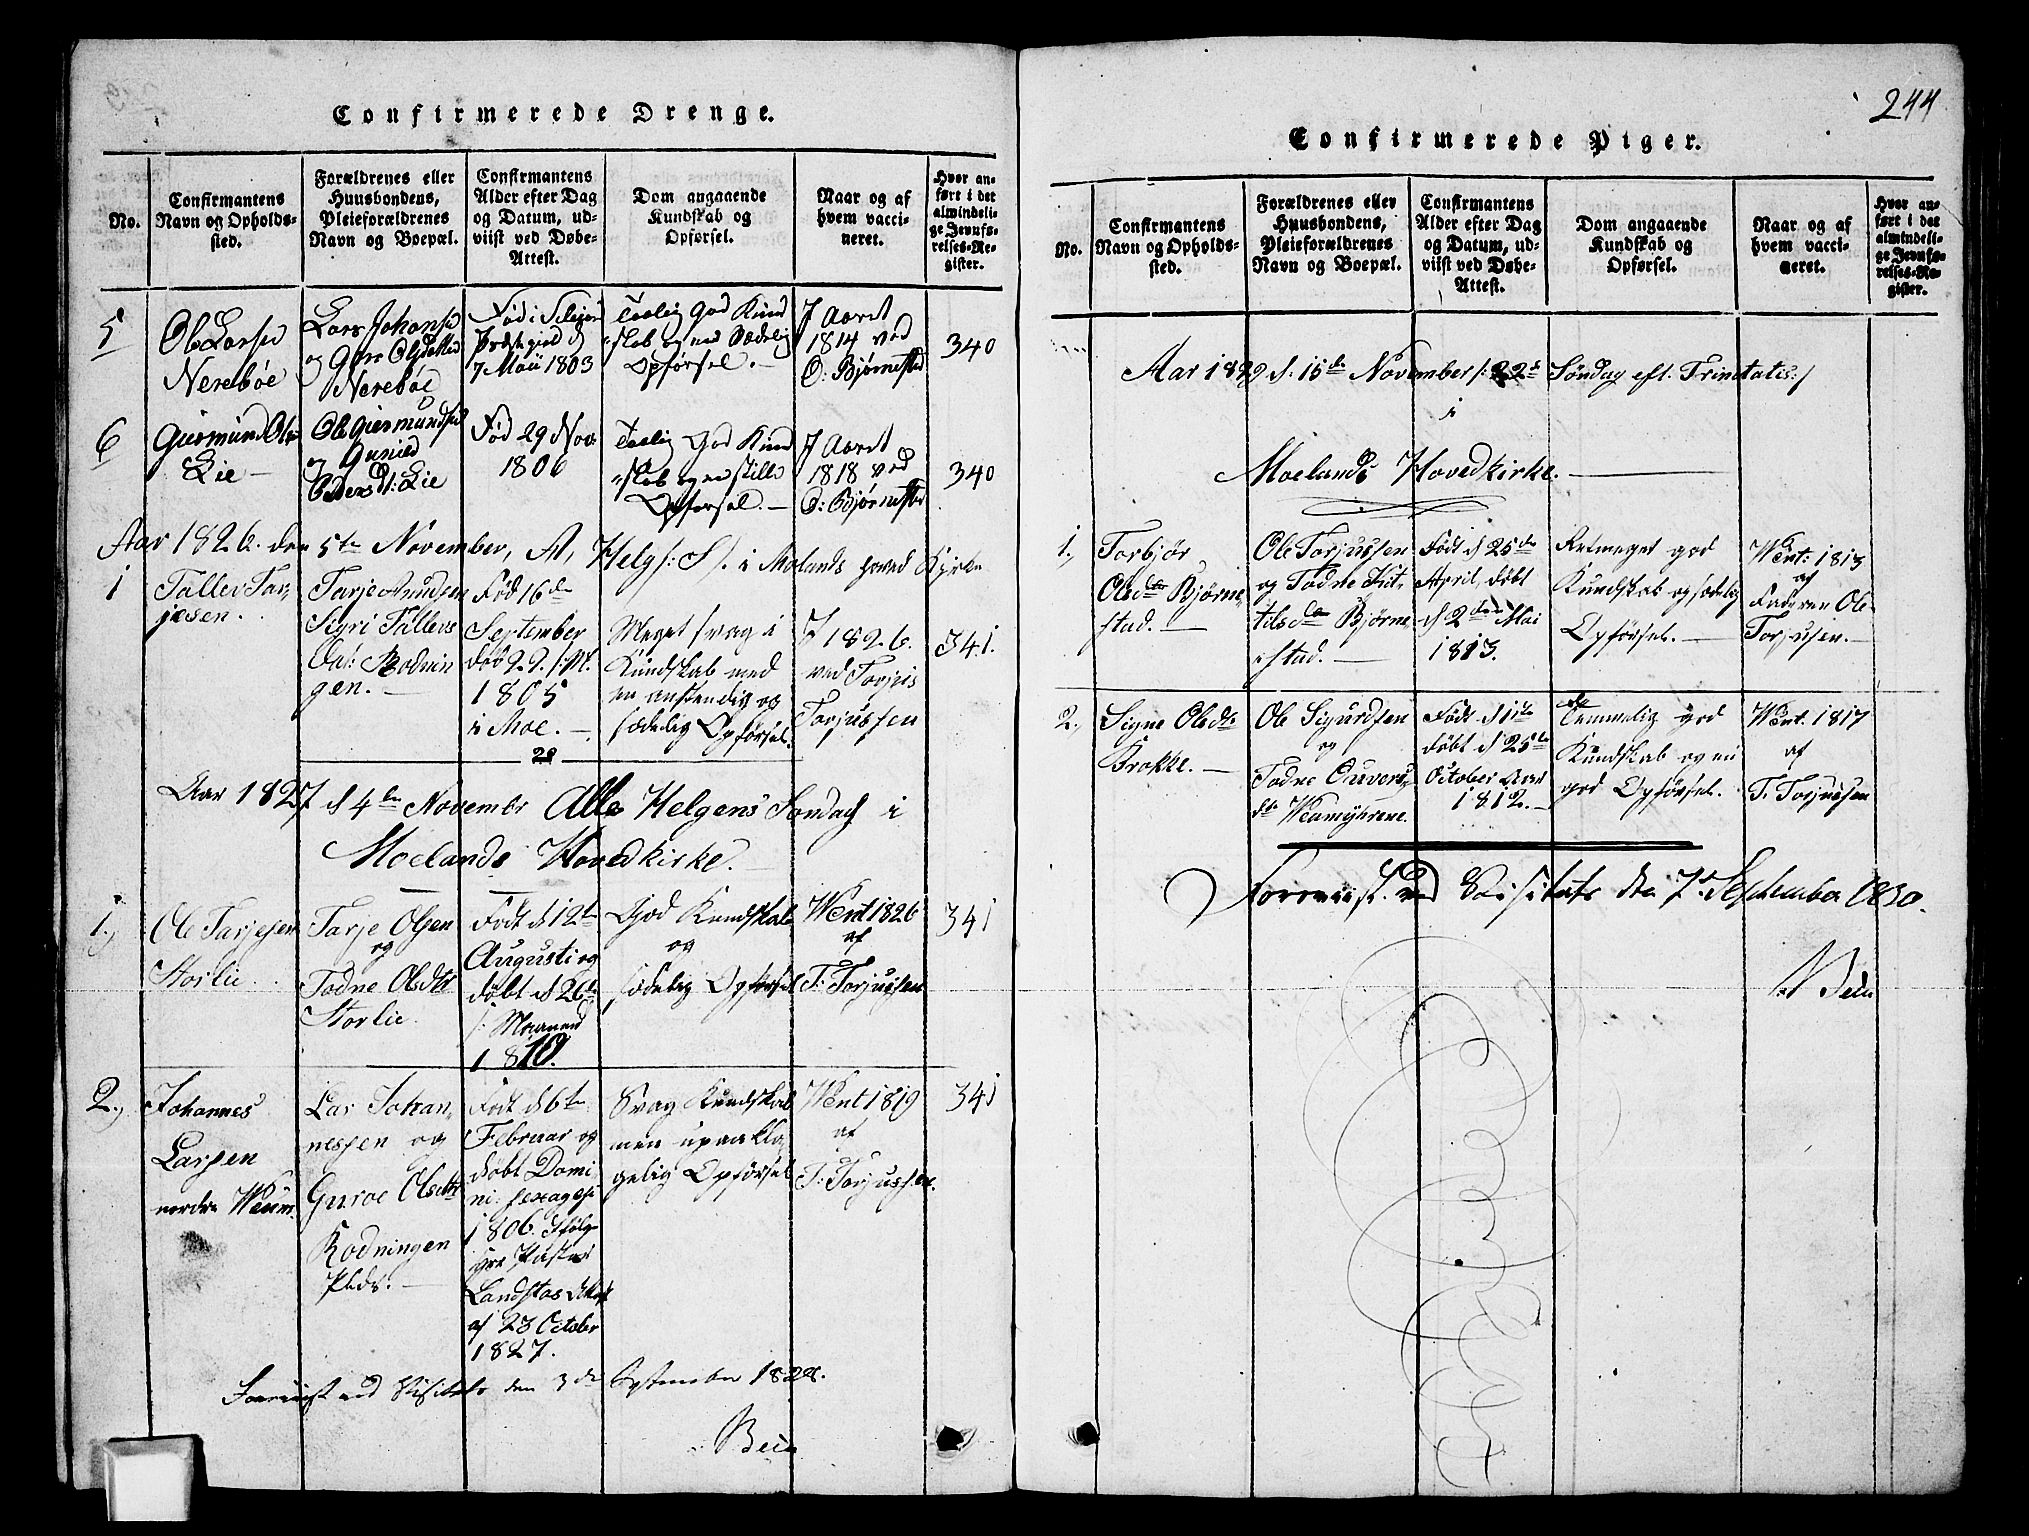 Confirmerede Drenge.
No.
Confirmantens
Navn og Opholds-
sted.
Forældrenes eller
Huusbondens,
Pleieforældrenes
Navn og Boepæl.
Confirmantens
Alder efter Dag
og Datum, ud-
viist ved Døbe-
Attest.
Dom angaaende
Kundskab og
Opførsel.
Naar og af
hvem vacci-
neret.
Hvor an-
ført i det
almindeli-
ge Jevnfø-
relses-Re-
gister.
5
Ole Larsen
Nerebøe
Lars Johansen
og Guro Olsdatter
Nerebøe
Fød i Silejord
Præstegield d
7 Maii 1803
Taalig God Kund
skab og en Sædelig
Opførsel. -
I Aaret
1814 ved
O: Bjørnestad
340
6
Giermund Olsen
Lie -
Ole Giermundsen
og Gunild
Lie
Fød 29 Nov.
1806
Taalig God Kund
skab og en stille
Opførsel. -
I Aaret
1818 ved
O: Bjørnestad
340
Aar 1826. den 5te November, A, Helg: S. i Molands hoved Kirke
1
Tallev Tar-
jesen.
Tarje Aundsen
Sigri Tallevs
Dat: Rodnin
gen. -
Fød 16de
September
døb 22. :M.
1805
i Moe. -
Meget svag i
Kundskab med
en anstendig og
sædelig Opførsel.
I 1826.
ved Torjuis
Torjussen
341.
28
Aar 1827 d 4de Novembr Alle Helgens Søndag i
Moelands Hovedkirke.
1.,
Ole Tarjesen
Storlie.
Tarje Olsen
og
Todne Olsdtr
Storlie.
Født d 12te
Augusti og
døbt d 26de
s: Maaned
1810.
God Kundskab
og
sædelig Opførsel
Vent 1826
af
T: Torjussen
341
2.,
Johannes
Larsen
nordre Weum.
Lar Johan-
nessen og
Guroe Olsdtr
Rodningen
Plads. -
Født d 6te
Februar og
døbt Domi
ni: sexages:
1806. Ifølge
Hrr Pastor
Landstas Attest
af 23 October
1827.
Svag Kundskab
men upaakla
gelig Opførsel
Vent 1819
af
T: Torjussen.
341
Foreviist ved Visitats den 3de September 1828.
244
Confirmerede Piger.
No.
Confirmantens
Navn og Opholds-
sted.
Forældrenes eller
Huusbondens,
Pleieforældrenes
Navn og Boepæl.
Confirmantens
Alder efter Dag
og Datum, ud-
viist ved Døbe-
Attest.
Dom angaaende
Kundskab og
Opførsel.
Naar og af
hvem vacci-
neret.
Hvor an-
ført i det
almindeli-
ge Jevnfø-
relses-Re-
gister.
Aar 1829 d. 15de November /: 22de Søndag eft. Trinitatis :/
i
Moelands Hovedkirke.
1.,
Torbjør
Olsdtr Bjørne-
stad. -
Ole Torjussen
og Todne Kit-
tilsdtr Bjørne-
stad. -
Født d 25de
April, døbt
d 2den Mai
1813.
Retmeget god
Kundskab og sædelig
Opførsel. -
Vent: 1813
af
Faderen Ole
Torjusen. -
2.,
Signe Olsdtr
Brokke. -
Ole Sigurdsen
og
Todne Ouvers-
dtr Weumyhrene.
Født d 1te
døbt d 25de
October Aar
1812. -
Temmelig god
Kundskab og en
god Opførsel.
Vent: 1817
af
T. Torjussen
Foreviist ved Visitats den 7de September 1830.